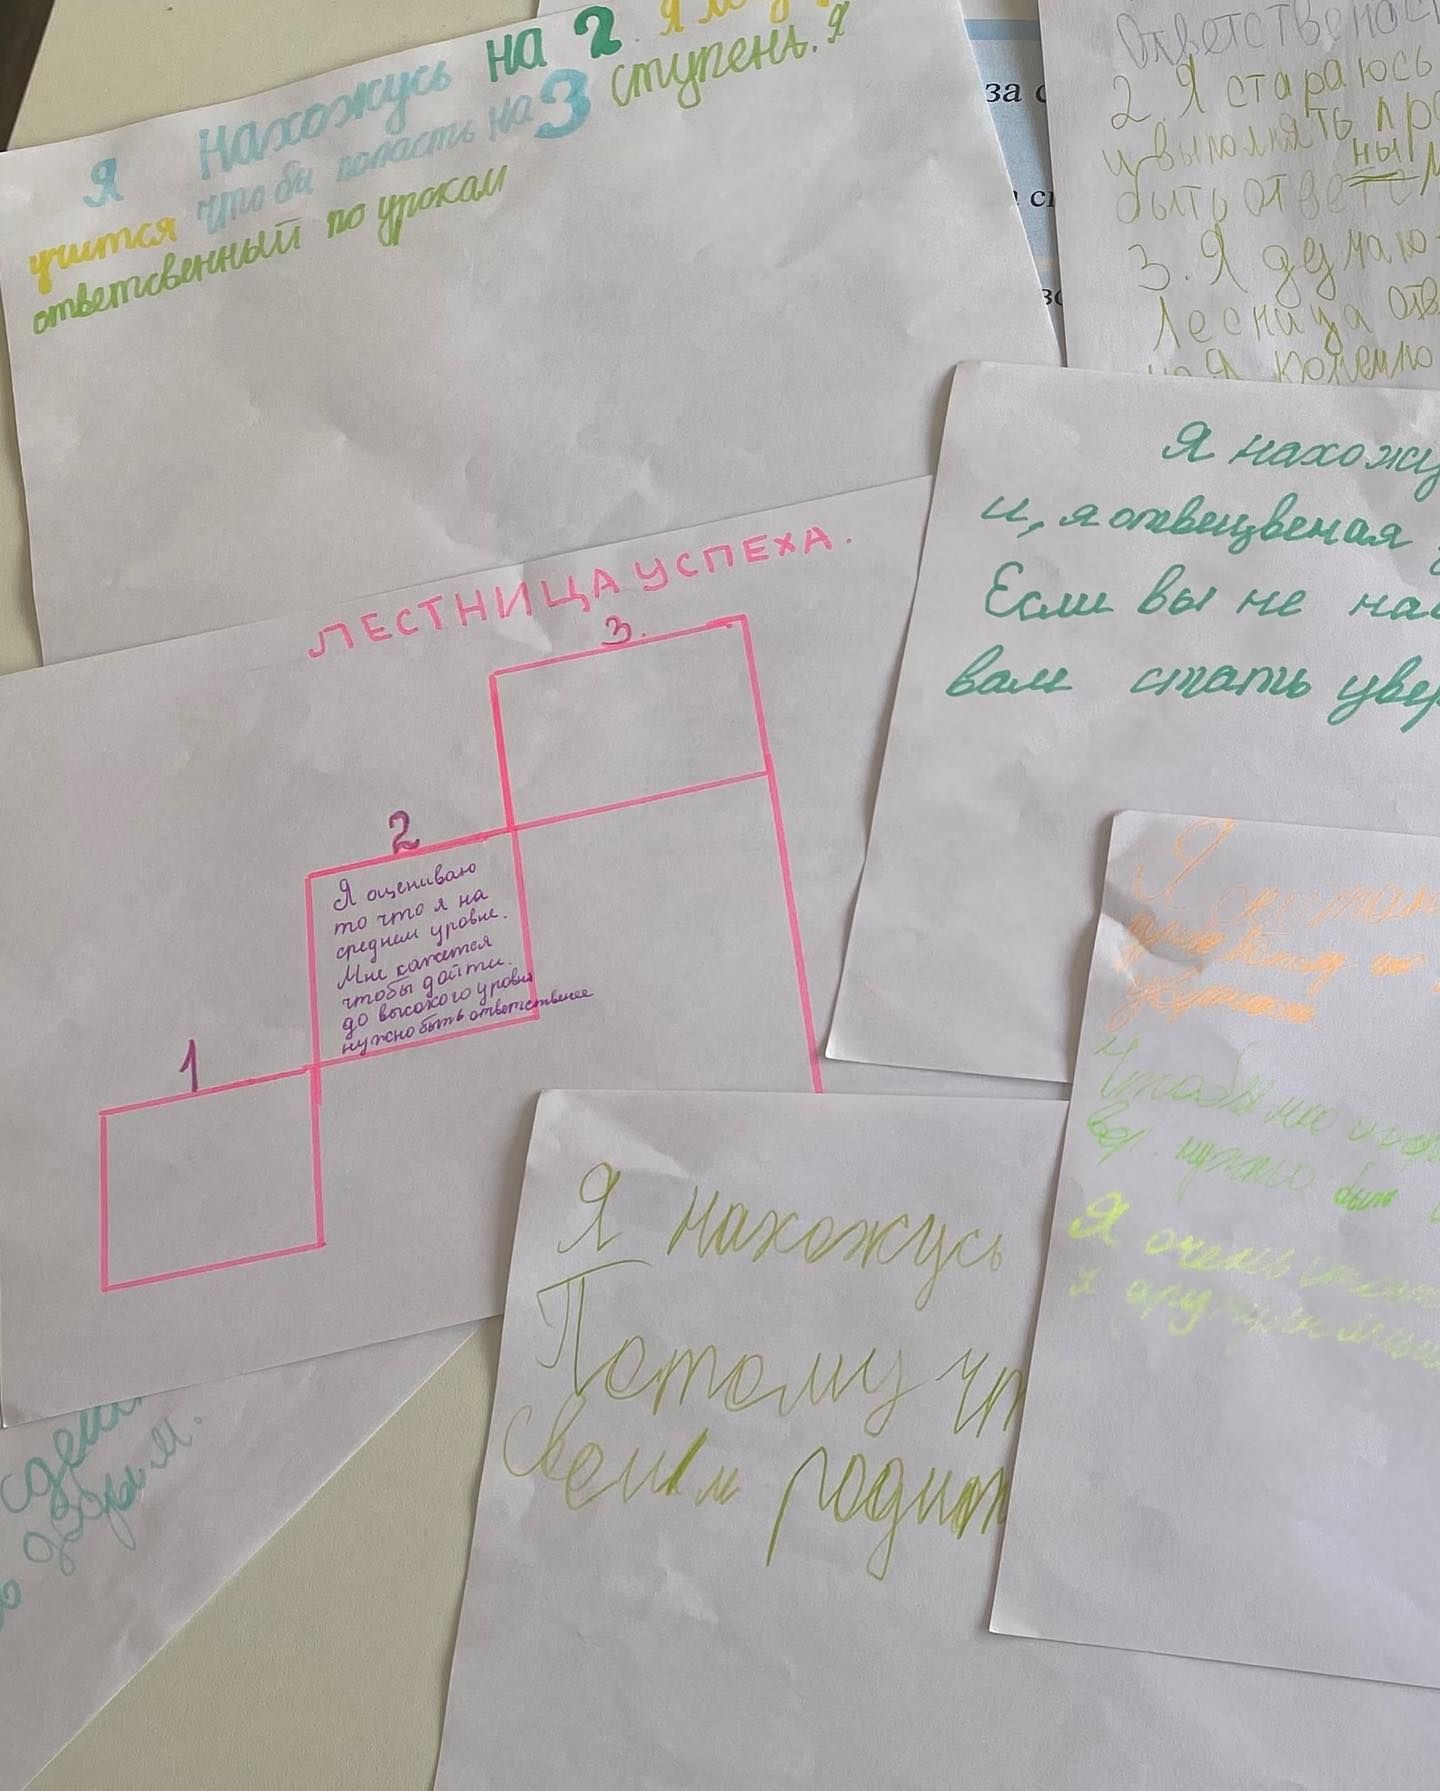 Я нахожусь на 2. Я могу
учится что бы попасть на 3 ступень. Я
ответсвенный по урокам
за с
Ответственаст
2. Я стараюсь
и выполнять пра
ны
быть ответс
3. Я думаю
Лесница отв
Я конечно
Я нахожу
и, я отвецвеная
Если вы не на
вам стать увер
ЛЕСТНИЦА УСПЕХА.
3.
2
Я оцениваю
то что я на
среднем уровне.
Мне кажется
чтобы дойти
до высокого уровня
нужно быть ответственее
1
Я
Чтобы мне
нужно быть
Я очень
Я нахожусь
Потому чт
Своим родит
сдел
добрым.